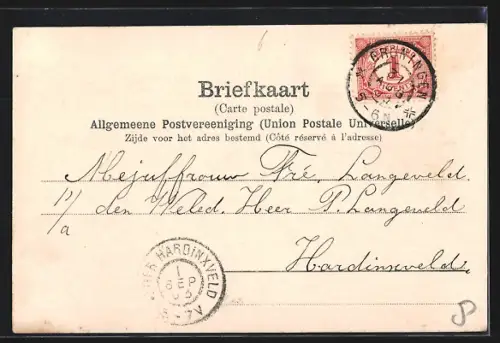 6
GRONINGEN
1
5-6N
Briefkaart
(Carte postale)
Algemeene Postvereeniging (Union Postale Universelle)
Zijde voor het adres bestemd (Côté réservé à l'adresse)
Mejuffrouw Fré. Langeveld
p/a den Weled. Heer P. Langeveld
Hardinxveld.
HARDINXVELD
1
SEP
03
8